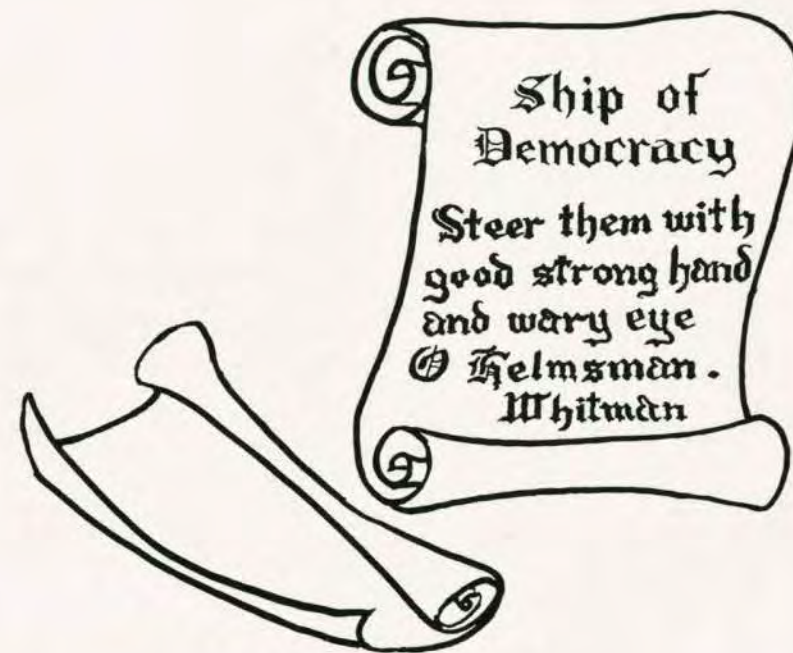 Ship of
Democracy
Steer them with
good strong hand
and wary eye
O Helmsman.
Whitman